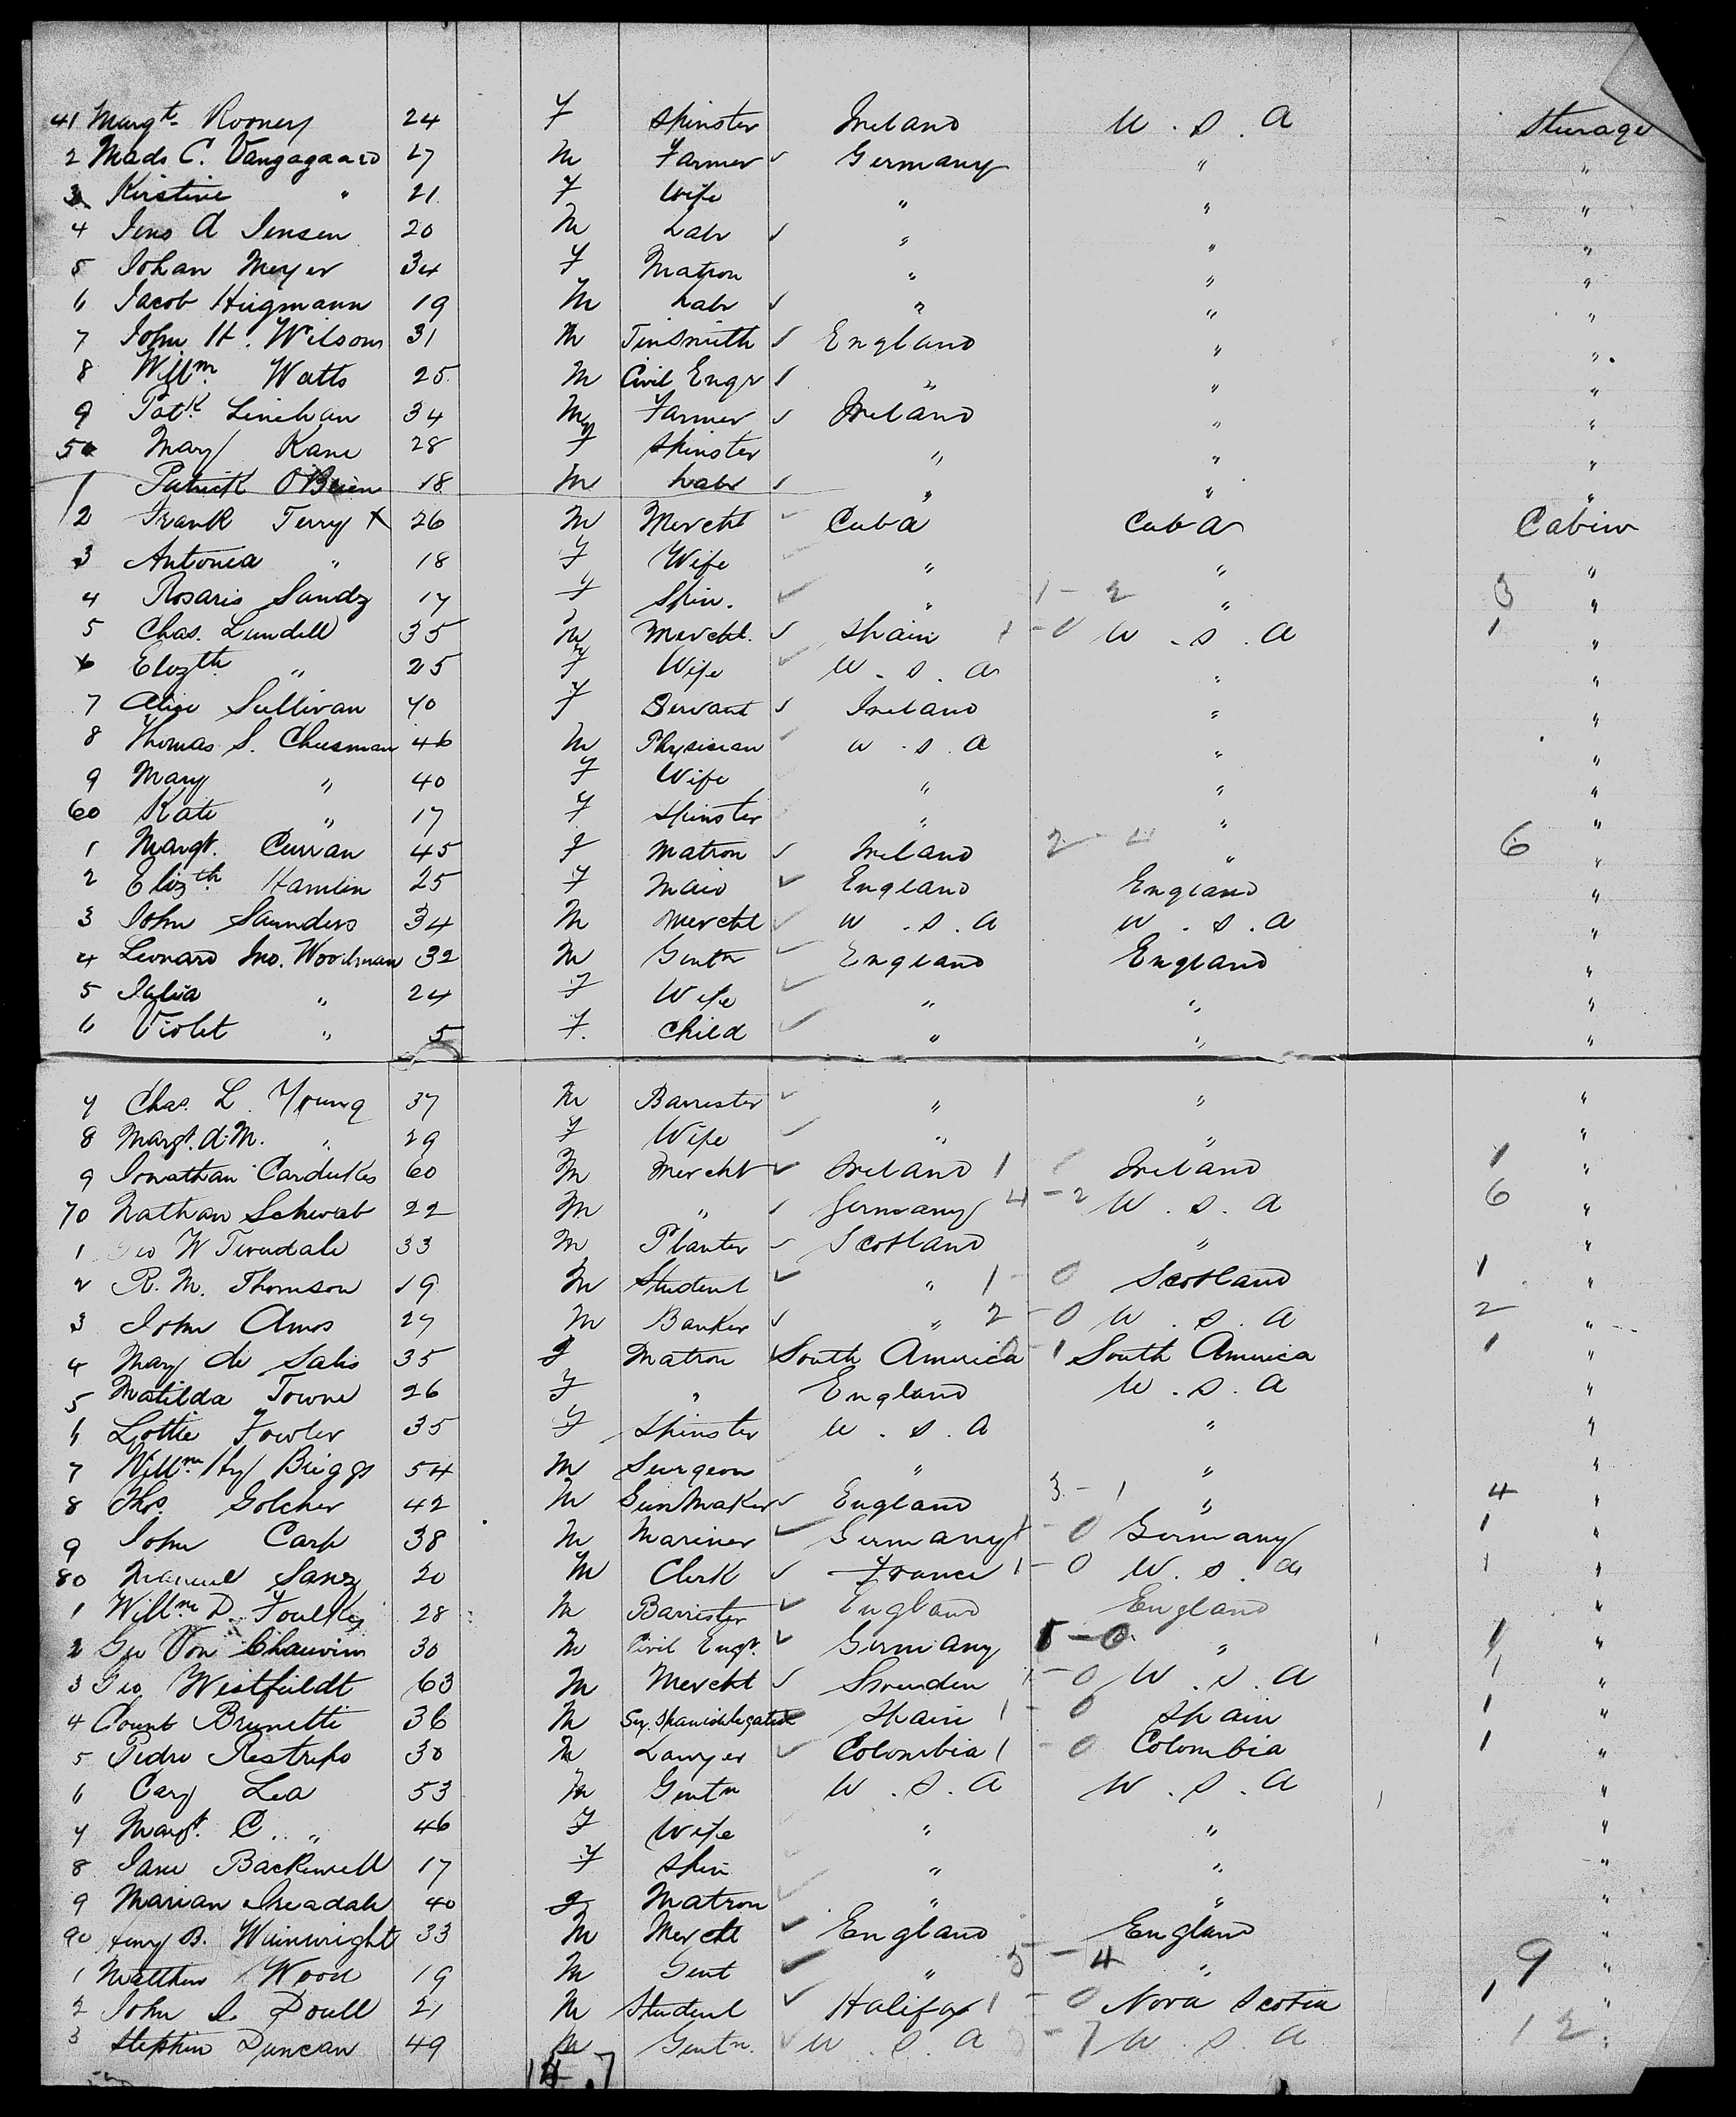 41 Margt. Rooney 24 F Spinster Ireland U.S.A Steerage
2 Mads C. Vangagaard 27 M Farmer ✓ Germany " "
3 Kirstine " 21 F Wife " " "
4 Jens A Jensen 20 M Labr ✓ " " "
5 Johan Meyer 34 F Matron " " "
6 Jacob Hiegmann 19 M Labr ✓ " " "
7 John H. Wilson 31 M Tinsmith ✓ England " "
8 Willm. Watts 25 M Civil Engr ✓ " " "
9 Patk. Linehan 34 M Farmer ✓ Ireland " "
50 Mary Kane 28 F Spinster " " "
1 Patrick O'Brien 18 M Labr ✓ " " "
2 Frank Terry X 26 M Mercht ✓ Cuba Cuba Cabin
3 Antonia " 18 F Wife " " "
4 Rosario Sandz 17 F Spin. ✓ " 1-2 " 3 "
5 Chas. Lundell 35 M Mercht. ✓ Spain 1-0 U.S.A 1 "
6 Elizth. " 25 F Wife ✓ U.S.A " "
7 Alice Sullivan 40 F Servant ✓ Ireland " "
8 Thomas S. Cheesman 46 M Physician ✓ U.S.A " "
9 Mary " 40 F Wife " " "
60 Kate " 17 F Spinster " " "
1 Margt. Curran 45 F Matron ✓ Ireland 2-4 " 6 "
2 Elizth. Hamlin 25 F Maid ✓ England England "
3 John Saunders 34 M Mercht ✓ U.S.A U.S.A "
4 Leonard Jno. Woodman 32 M Gentn ✓ England England "
5 Julia " 24 F Wife ✓ " " "
6 Violet " 5 F. Child ✓ " " "
7 Chas. L. Young 37 M Barrester ✓ " " "
8 Margt. d.M. " 29 F Wife ✓ " " "
9 Jonathan Cardukes 60 M Mercht ✓ Ireland 1 Ireland 1 "
70 Nathan Schwab 22 M " ✓ Germany 4-2 U.S.A 6 "
1 Geo W Tivendale 33 M Planter ✓ Scotland " "
2 R. M. Thomson 19 M Student ✓ " 1-0 Scotland 1 "
3 John Amos 27 M Banker ✓ " 2-0 U.S.A 2 "
4 Mary de Salis 35 F Matron South America 0-1 South America 1 "
5 Matilda Towne 26 F " England U.S.A "
6 Lottie Fowler 35 F Spinster U.S.A " "
7 Willm. Hy Briggs 54 M Surgeon " " "
8 Thos. Golcher 42 M GunMaker ✓ England 3-1 " 4 "
9 John Carp 38 M Mariner ✓ Germany 1-0 Germany 1 "
80 Manuel Sanz 20 M Clerk ✓ France 1-0 U.S.A 1 "
1 Willm. D. Foulkes 28 M Barrister ✓ England England "
2 Geo Von Chauvin 30 M Civil Engr. ✓ Germany 1-0 " 1 "
3 Geo Westfeldt 63 M Mercht ✓ Sweeden 1-0 U.S.A 1 "
4 Count Brunetti 36 M Sey. Spanish Legation Spain 1-0 Spain 1 "
5 Pedro Restrepo 30 M Lawyer ✓ Colombia 1-0 Colombia 1 "
6 Cary Lea 53 M Gentn U.S.A U.S.A "
7 Margt. C. " 46 F Wife " " "
8 Jane Backewell 17 F Spin " " "
9 Marian Ireadale 40 F Matron " " "
90 Heny B. Wainwright 33 M Mercht ✓ England England "
1 Matthew Wood 19 M Gent ✓ " 5-4 " 9 "
2 John I. Doull 21 M Student ✓ Halifax 1-0 Nova Scotia 1 "
3 Stephen Duncan 49 M Gentn. ✓ U.S.A 5-7 U.S.A 12 "